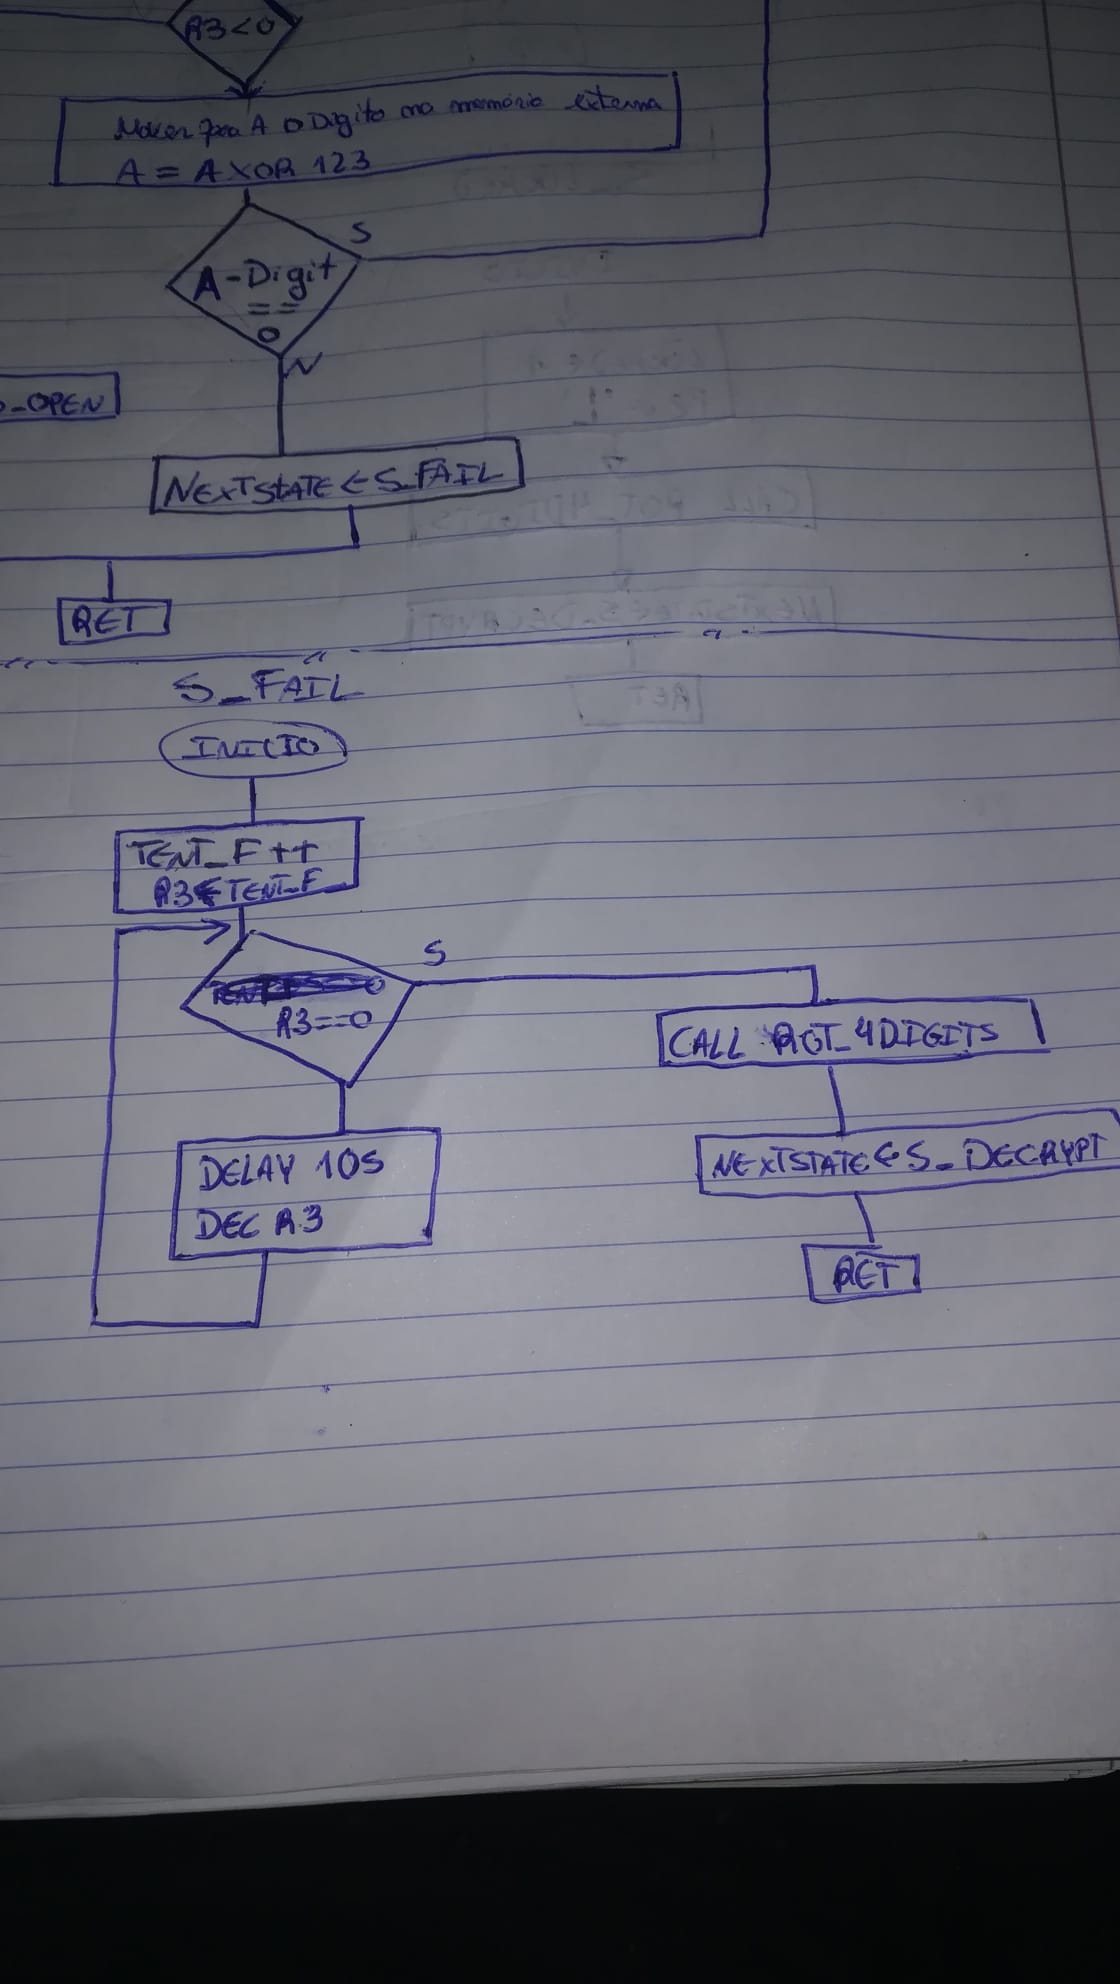 R3<0
Mover para A o Digito na memória externa
A = A XOR 123
S
A-Digit
==
0
N
_OPEN
NEXTSTATE ← S_FAIL
RET
S_FAIL
INICIO
TENT_F ++
R3 ← TENT_F
S
R3==0
CALL ROT_4DIGITS
DELAY 10S
DEC R3
NEXTSTATE ← S_DECRYPT
RET